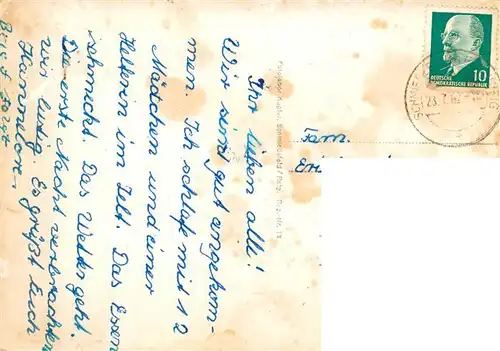 Ihr lieben all!
Wir sind gut angekom-
men. Ich schlafe mit 12
Mädchen und einer
Helferin im Zelt. Das Essen
schmeckt. Das Wetter geht.
Die erste Nacht verbrachten
wir lustig. Es grüßt Euch
Hannelore.
Fam.
DEUTSCHE
DEMOKRATISCHE REPUBLIK
10
23. 7.